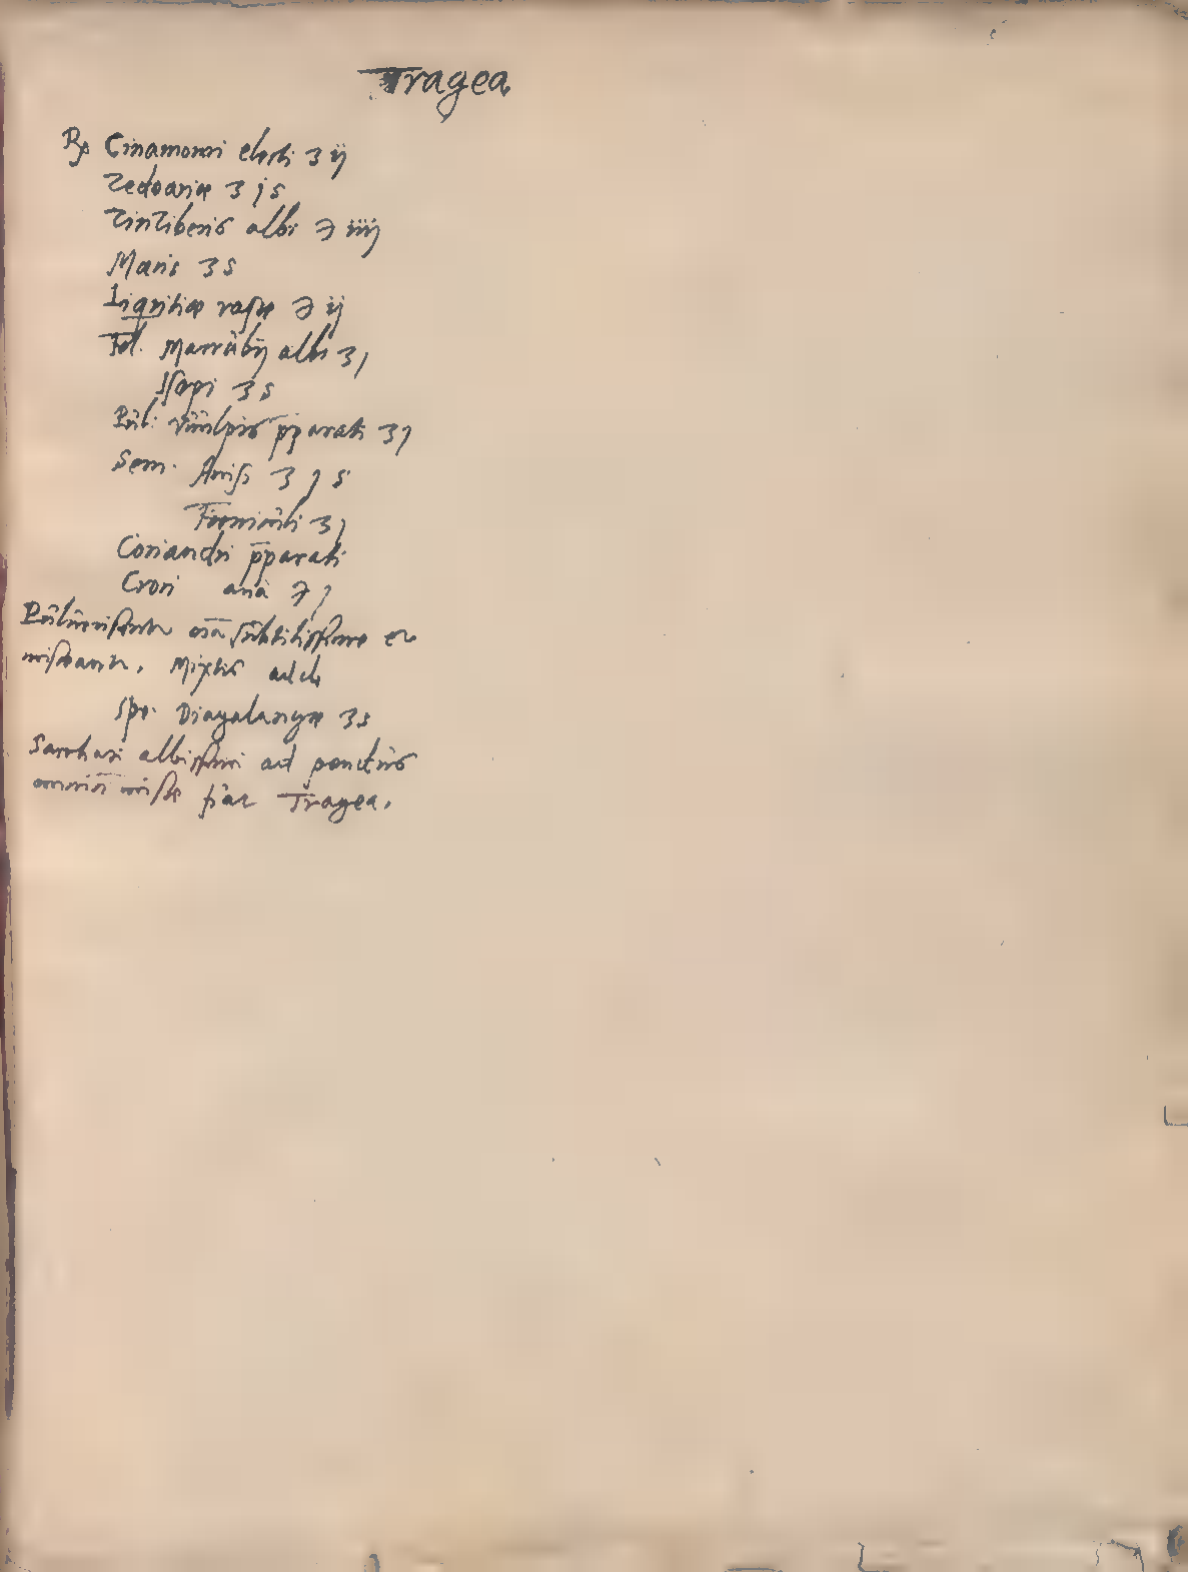 Tragea
℞ Cinamomi electi ʒ ij
Zedoariæ ʒ j s
Zinziberis albi ℈ iiij
Macis ʒ s
Liqritiæ rasæ ℈ ij
Fol. Marrubij albi ʒ j
Isopi ʒ s
Pul: vulpis p̄parati ʒ j
Sem. Anisi ʒ j s
Foeniculi ʒ j
Coriandri p̄parati
Croci ana ℈ j
Pulverisentur oīa subtilissime et
misceantur. Mixtis adde
Spe: Diagalangæ ʒ s
Sacchari albissimi ad pondus
omniū misce fiat Tragea.